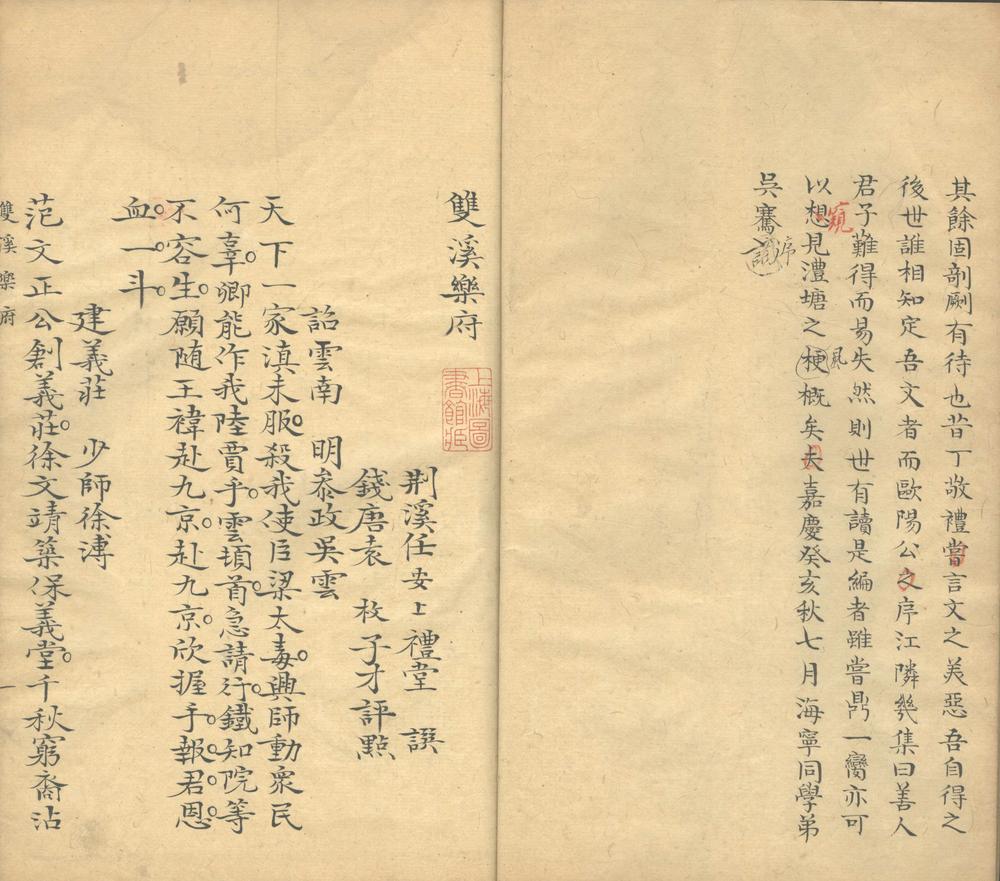 其餘固剞劂有待也昔丁敬禮嘗言文之美惡吾自得之
後世誰相知定吾文者而歐陽公之序江隣幾集曰善人
君子難得而易失然則世有讀是編者雖嘗鼎一臠亦可
以想見澧塘之梗概矣夫嘉慶癸亥秋七月海寧同學弟
窺
風
吳騫識
序
雙溪樂府
上海圖書館藏
荆溪任安上禮堂 譔
錢唐袁 枚子才評點
詔雲南 明叅政吳雲
天下一家滇未服殺我使臣梁太毒興師動衆民
何辜卿能作我陸賈乎雲頓首急請行鐵知院等
不容生願隨王褘赴九京赴九京欣握手報君恩
血一斗
建義莊 少師徐溥
范文正公創義莊徐文靖築保義堂千秋窮裔沾
雙溪樂府
一